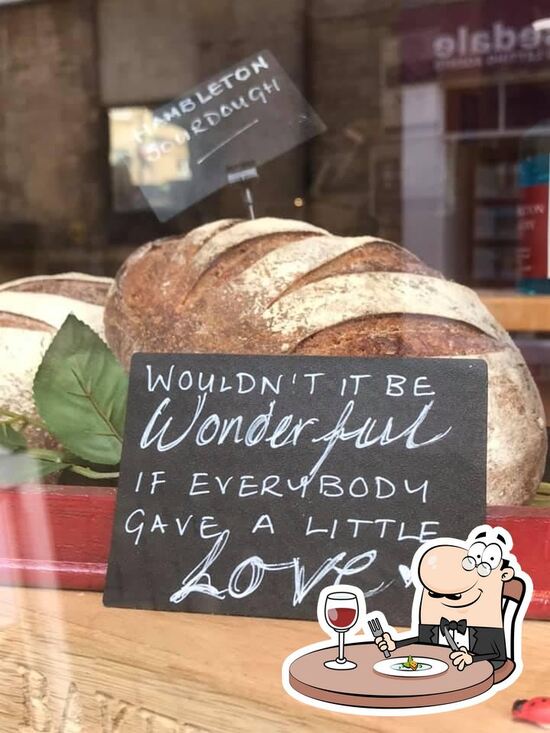 edale
HAMBLETON
SOURDOUGH
WOULDN'T IT BE
Wonderful
IF EVERYBODY
GAVE A LITTLE
LOVE